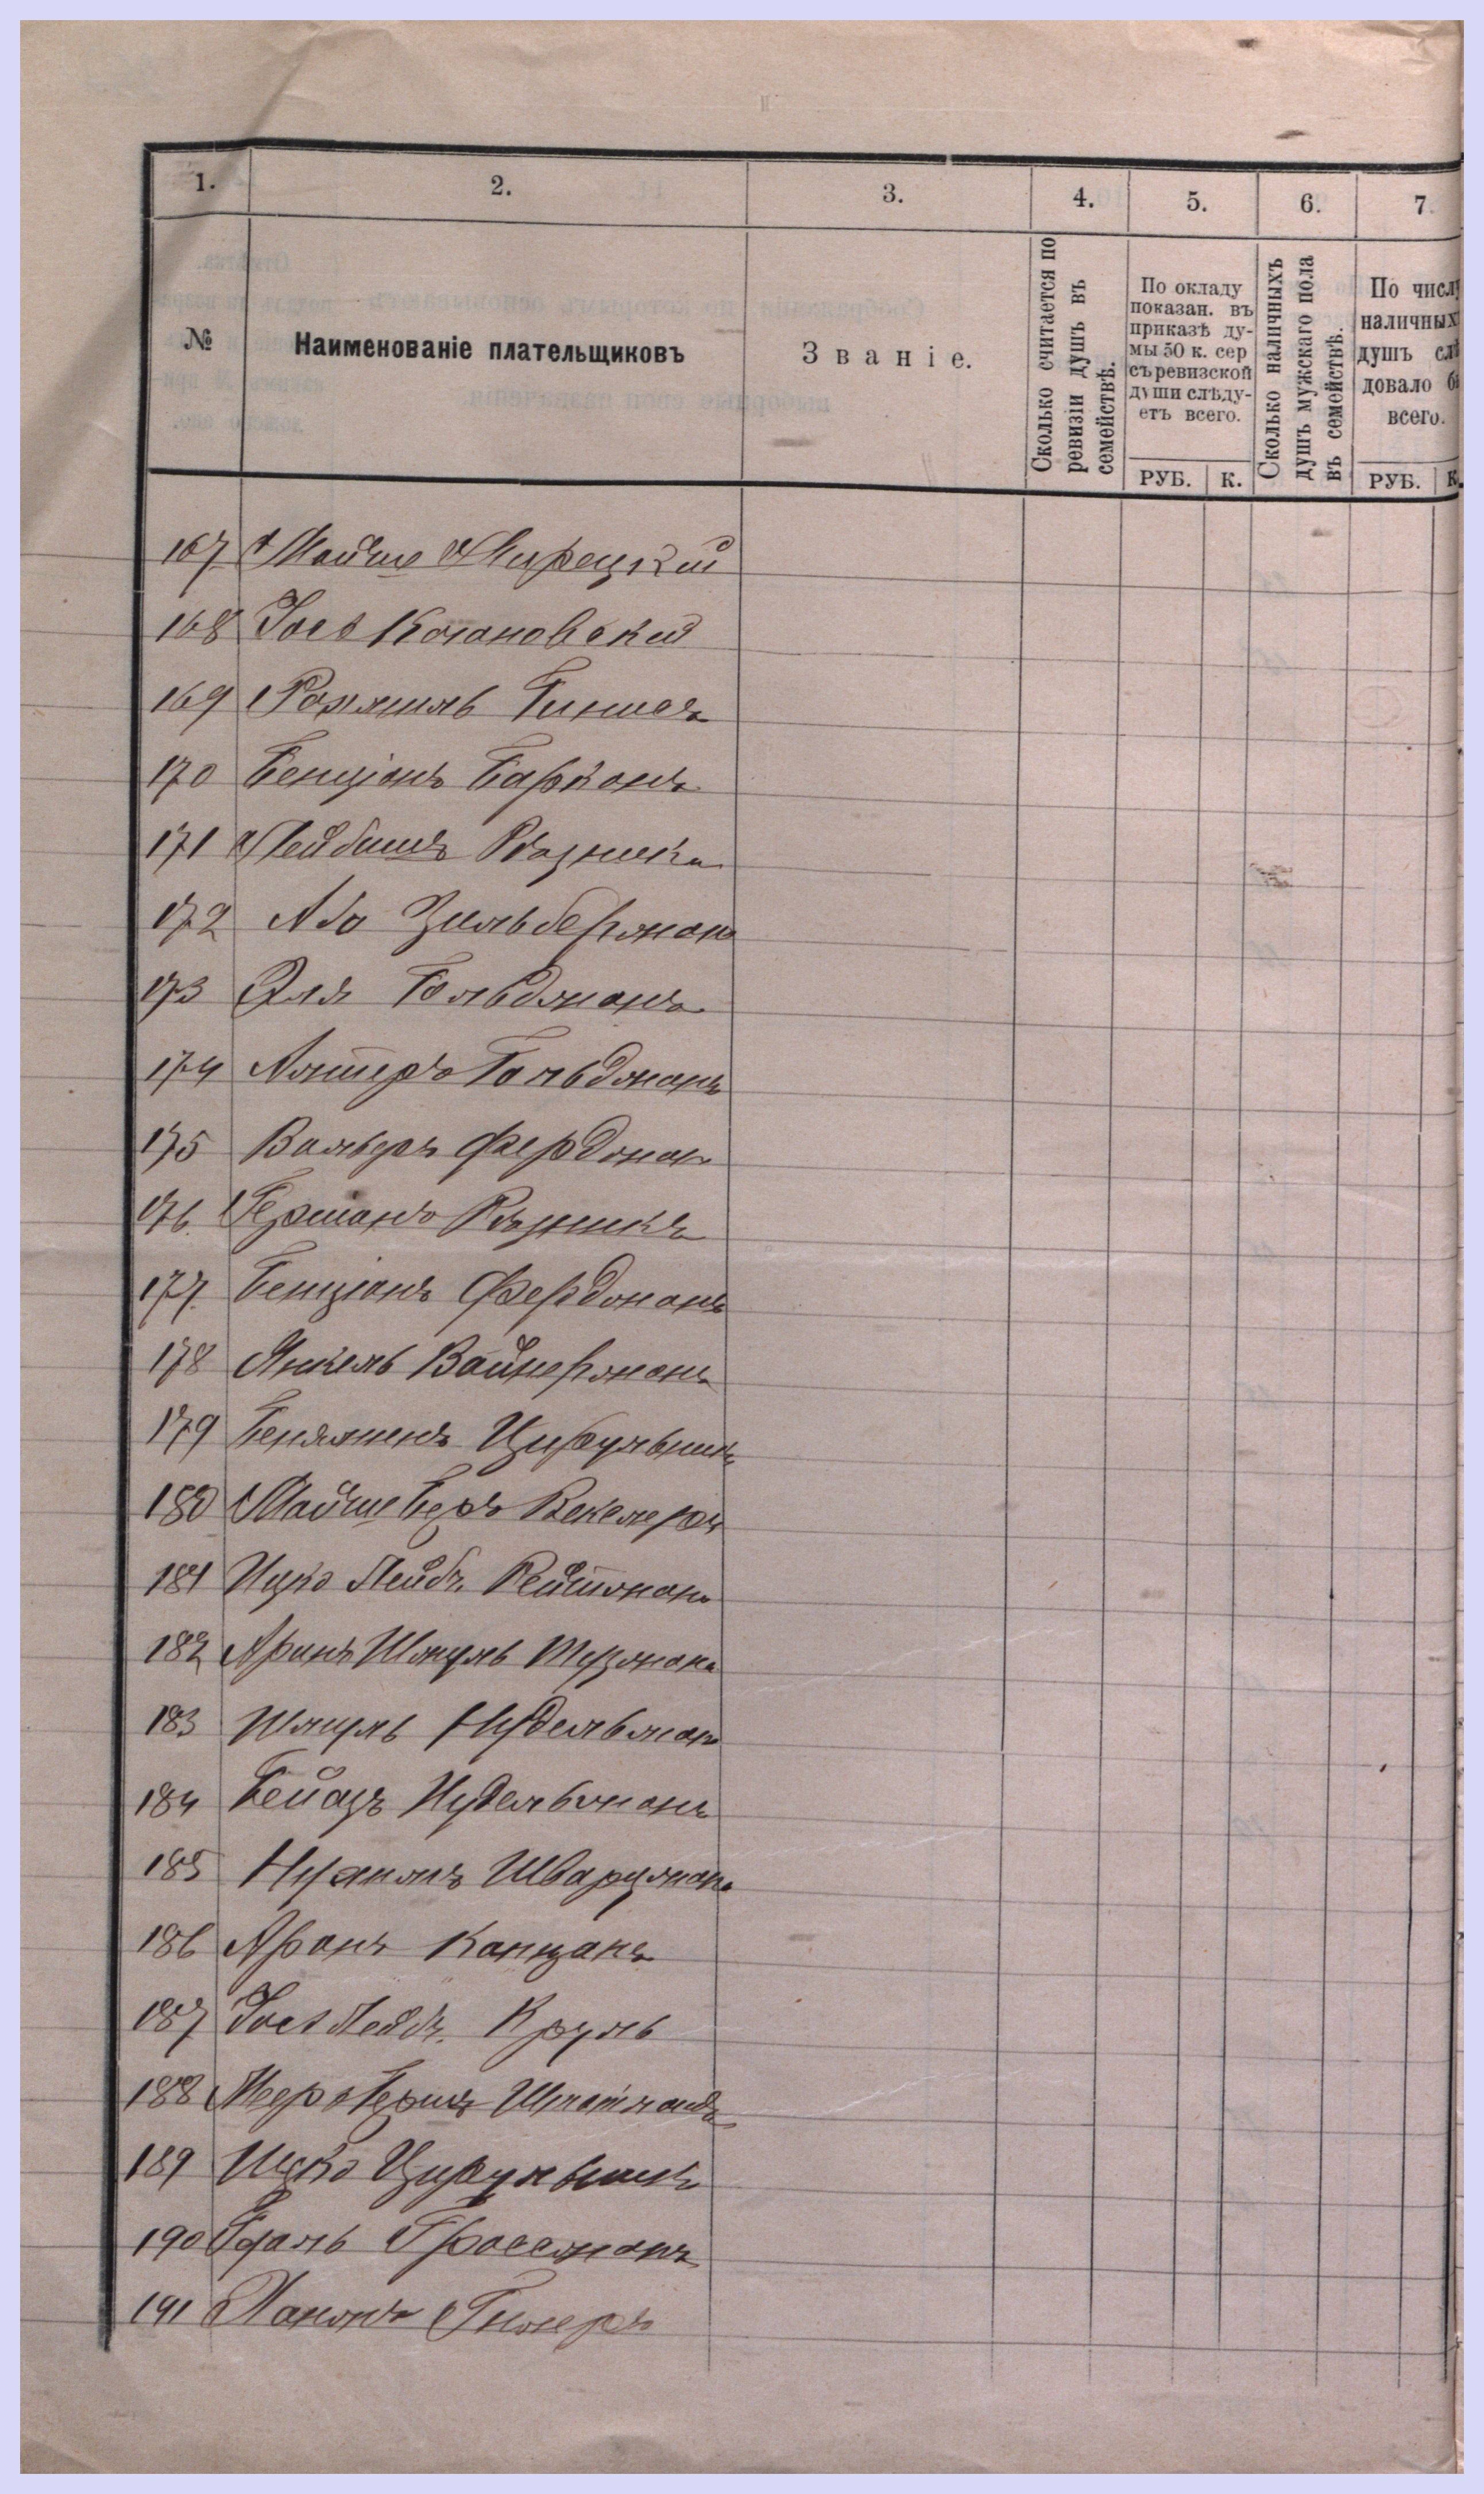 1. 2. 3. 4. 5. 6. 7.
№
Наименованіе плательщиковъ
Званіе.
Сколько считается по
ревизіи душъ въ
семействѣ.
По окладу
показан. въ
приказѣ ду-
мы 50 к. сер
съ ревизской
души слѣду-
етъ всего.
РУБ. К.
Сколько наличныхъ
душъ мужскаго пола
въ семействѣ.
По числу
наличных
душъ слѣ
довало б
всего.
РУБ. К.
167 Мойше Мирецкій
168 Іосъ Когановскій
169 Рахмиль
170 Бенціонъ Барканъ
171 Лейбишъ Рѣзникъ
172 Або Зильберманъ
173 Эля Гольдманъ
174 Алтеръ Гольдманъ
175 Вольфъ Фердманъ
176. Гершонъ Рѣзникъ
177. Бенціонъ Фердманъ
178 Янкель Вайнерманъ
179 Беняминъ Цирульникъ
180 Мойше Беръ Векслеръ
181 Ицко Лейбъ Рейтманъ
182 Аронъ Шмуль
183 Шмуль Нудельманъ
184 Нудельманъ
185 Нухимъ Шварцманъ
186 Аронъ Капцанъ
187 Іосъ Лейбъ Круль
188 Мееръ Гершъ
189 Ицко Цирульникъ
190 Гроссманъ
191